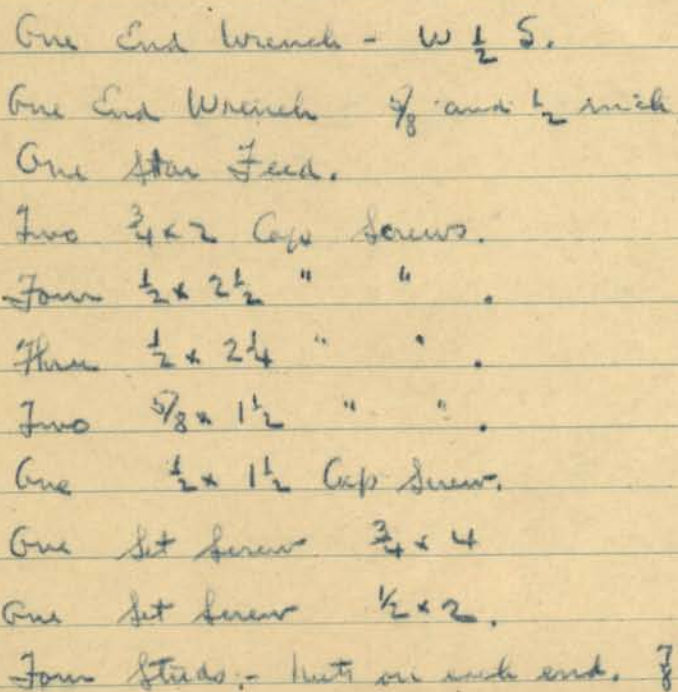 One End Wrench - W 1/2 S.
One End Wrench 5/8 and 1/2 inch
One Star Feed.
Two 3/4 x 2 Cap Screws.
Four 1/2 x 2 1/2 " " .
Three 1/2 x 2 1/4 " " .
Two 5/8 x 1 1/2 " " .
One 1/2 x 1 1/2 Cap Screw.
One Set Screw 3/4 x 4
One Set Screw 1/2 x 2.
Four Studs - Nuts on each end. 7/8